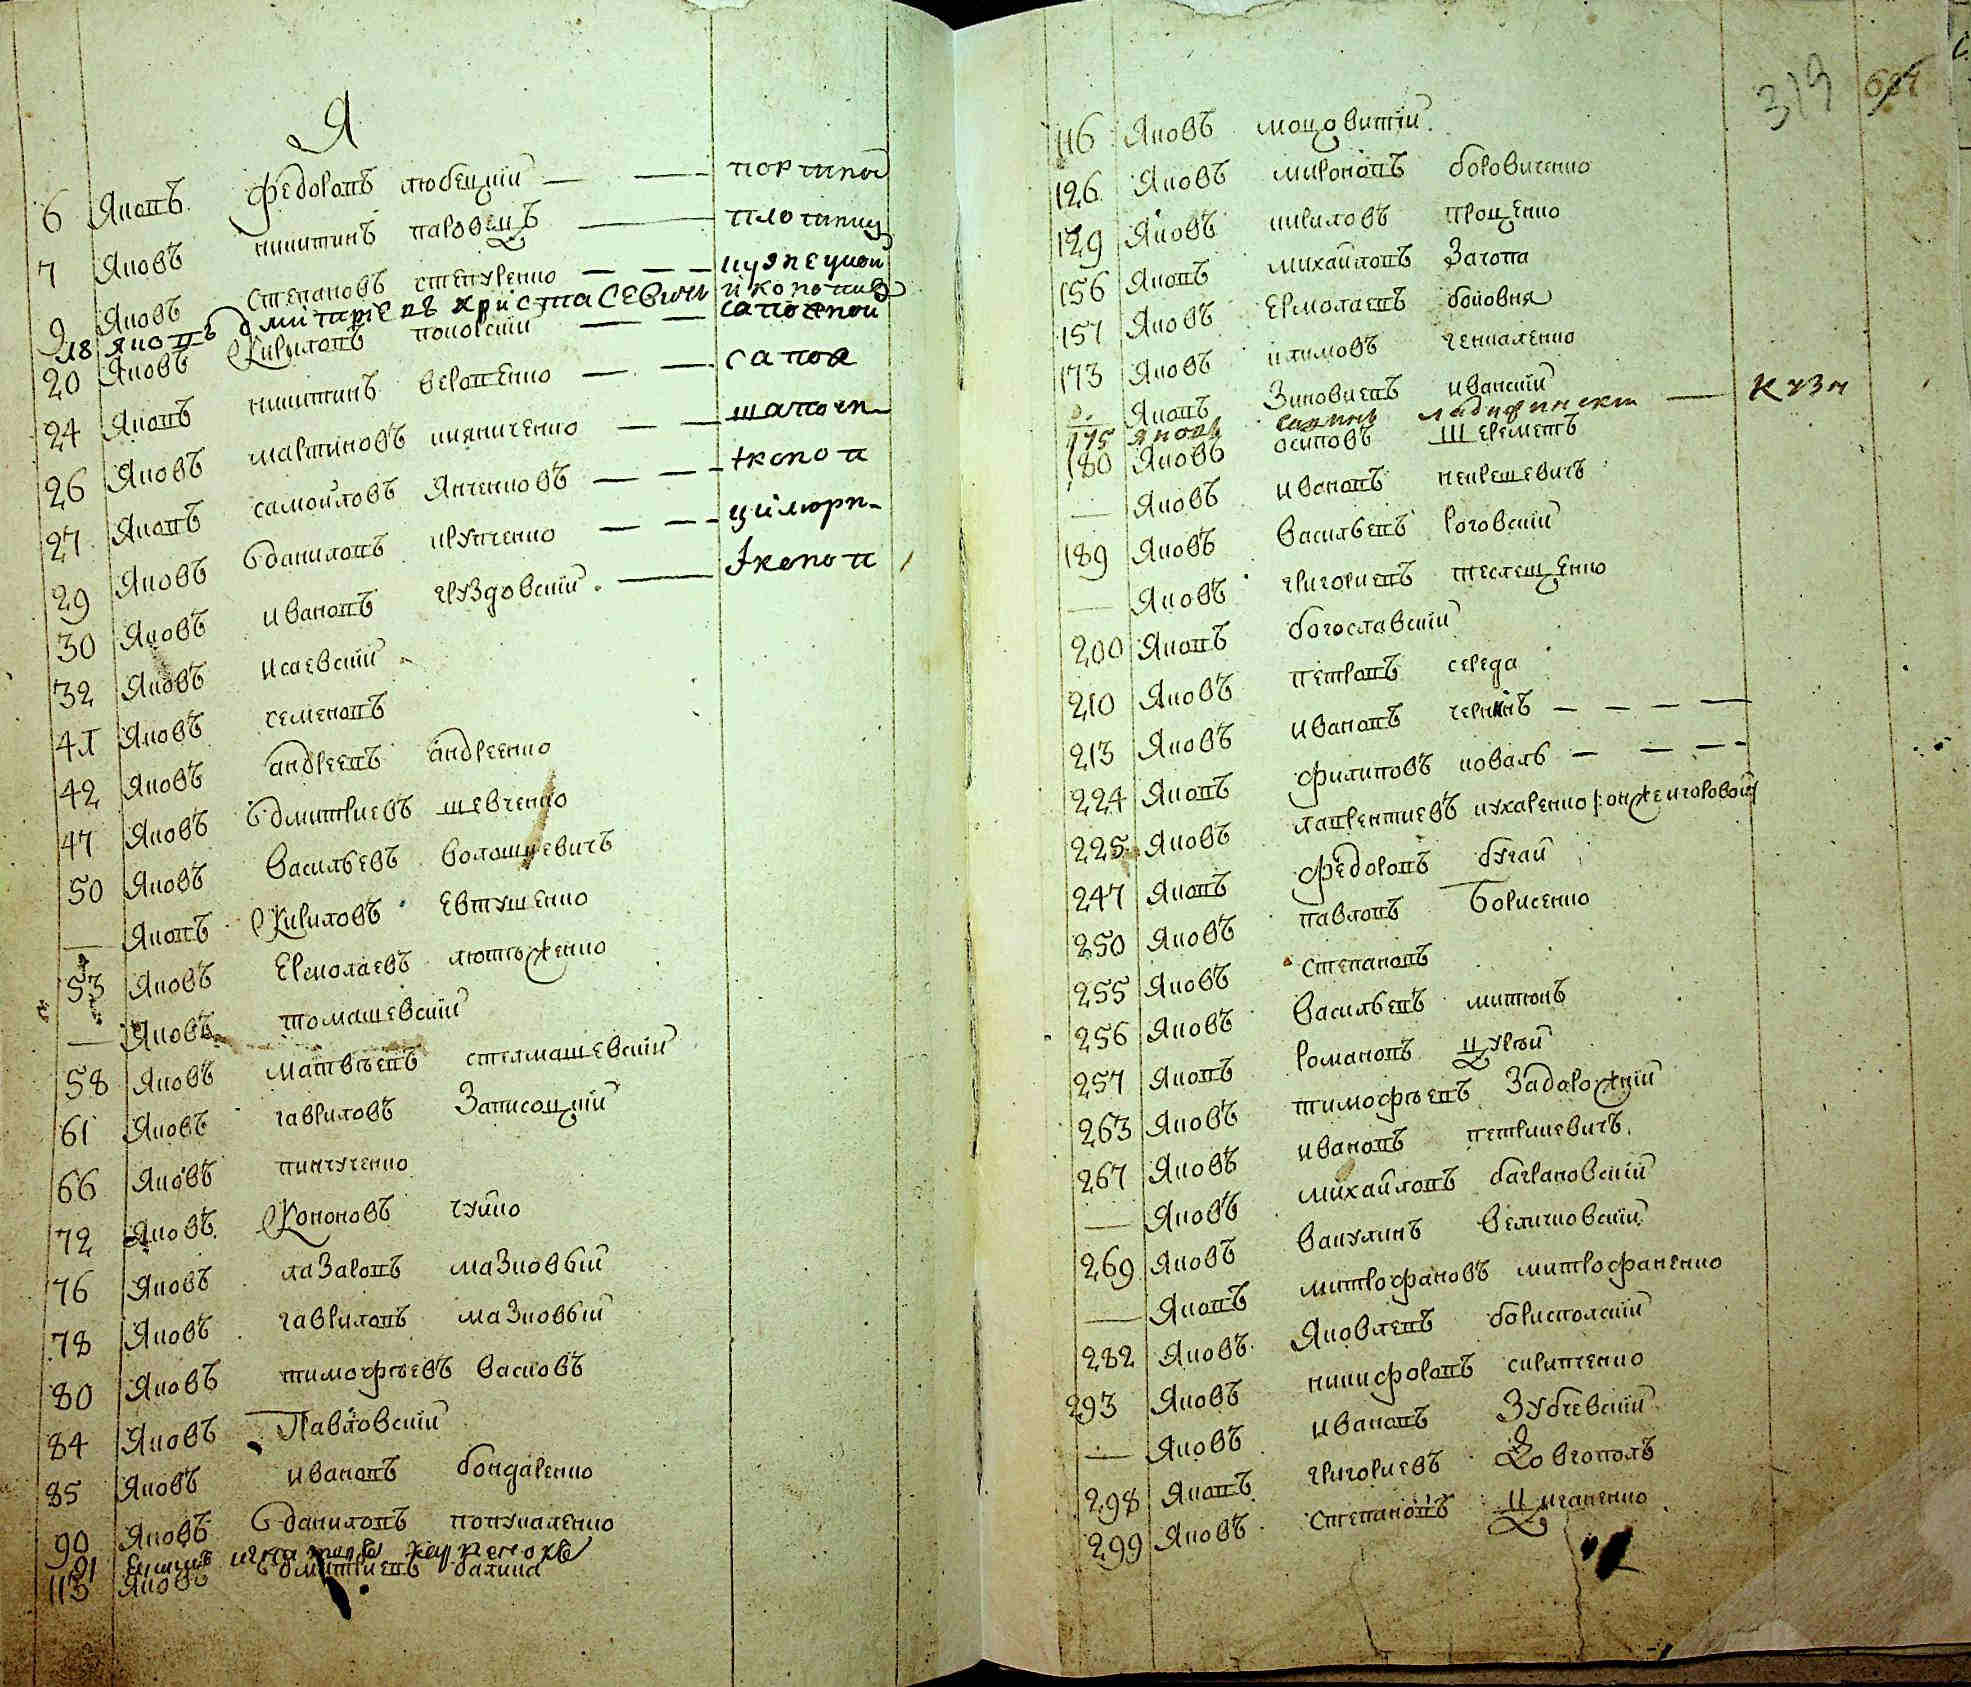 Я
6 Яковъ Федоровъ любецкій — — портной
7 Яковъ никитинъ паровецъ — плотниц
9 Яковъ Степановъ степуренко — — — кузнецкой
18 яковъ дмитріевъ христасевичъ иконопис
20 Яковъ Кириловъ поповскій — — сапожной
24 Яковъ никитинъ веропѣнко — — сапож
26 Яковъ мартиновъ кияниченко — — шапочн
27 Яковъ самойловъ Янченковъ — — іконоп
29 Яковъ даниловъ крупченко — — цилюрн
30 Яковъ ивановъ груздовскій — іконоп
32 Яковъ исаевскій
41 Яковъ семеновъ
42 Яковъ андреевъ андреенко
47 Яковъ дмитриевъ шевченко
50 Яковъ Васильевъ волошкевичъ
— Яковъ Кириловъ Евтушенко
53 Яковъ Ермолаевъ
— Яковъ томашевскій
58 Яковъ матвѣевъ стелмашевскій
61 Яковъ гавриловъ Записоцкій
66 Яковъ пинчученко
72 Яковъ Кононовъ чуйко
76 Яковъ лазаровъ мазковый
78 Яковъ гавриловъ мазковый
80 Яковъ тимофѣевъ васковъ
84 Яковъ Павловскій
85 Яковъ ивановъ бондаренко
90 Яковъ даниловъ
91 игнатовъ
113 Яковъ дмитриевъ балика
319
116 Яковъ моцовитій
126 Яковъ мироновъ боровиченко
129 Яковъ кириловъ проценко
156 Яковъ михайловъ Загона
157 Яковъ Ермолаевъ боковня
173 Яковъ климовъ чекаленко
Яковъ Зиновиевъ иванскій
175 яковъ савинъ — кузн
180 Яковъ осиповъ Шереметъ
— Яковъ ивановъ некрешевичъ
189 Яковъ Васильевъ роговскій
— Яковъ григориевъ телещенко
200 Яковъ богославскій
210 Яковъ петровъ середа
213 Яковъ ивановъ чернякъ — — — —
224 Яковъ филиповъ коваль — — — —
225 Яковъ лаврентиевъ кухаренко
247 Яковъ Федоровъ бугай
250 Яковъ павловъ Борисенко
255 Яковъ степановъ
256 Яковъ Васильевъ митюкъ
257 Яковъ романовъ цурой
263 Яковъ тимофѣевъ Задарожній
267 Яковъ ивановъ петрикевичъ
— Яковъ михайловъ баграновскій
269 Яковъ вакулинъ величковскій
— Яковъ митрофановъ митрофаненко
282 Яковъ Яковлевъ бориспольскій
293 Яковъ никифоровъ скрипченко
— Яковъ ивановъ Зубчевскій
298 Яковъ григориевъ Довгополъ
299 Яковъ степановъ Циганенко